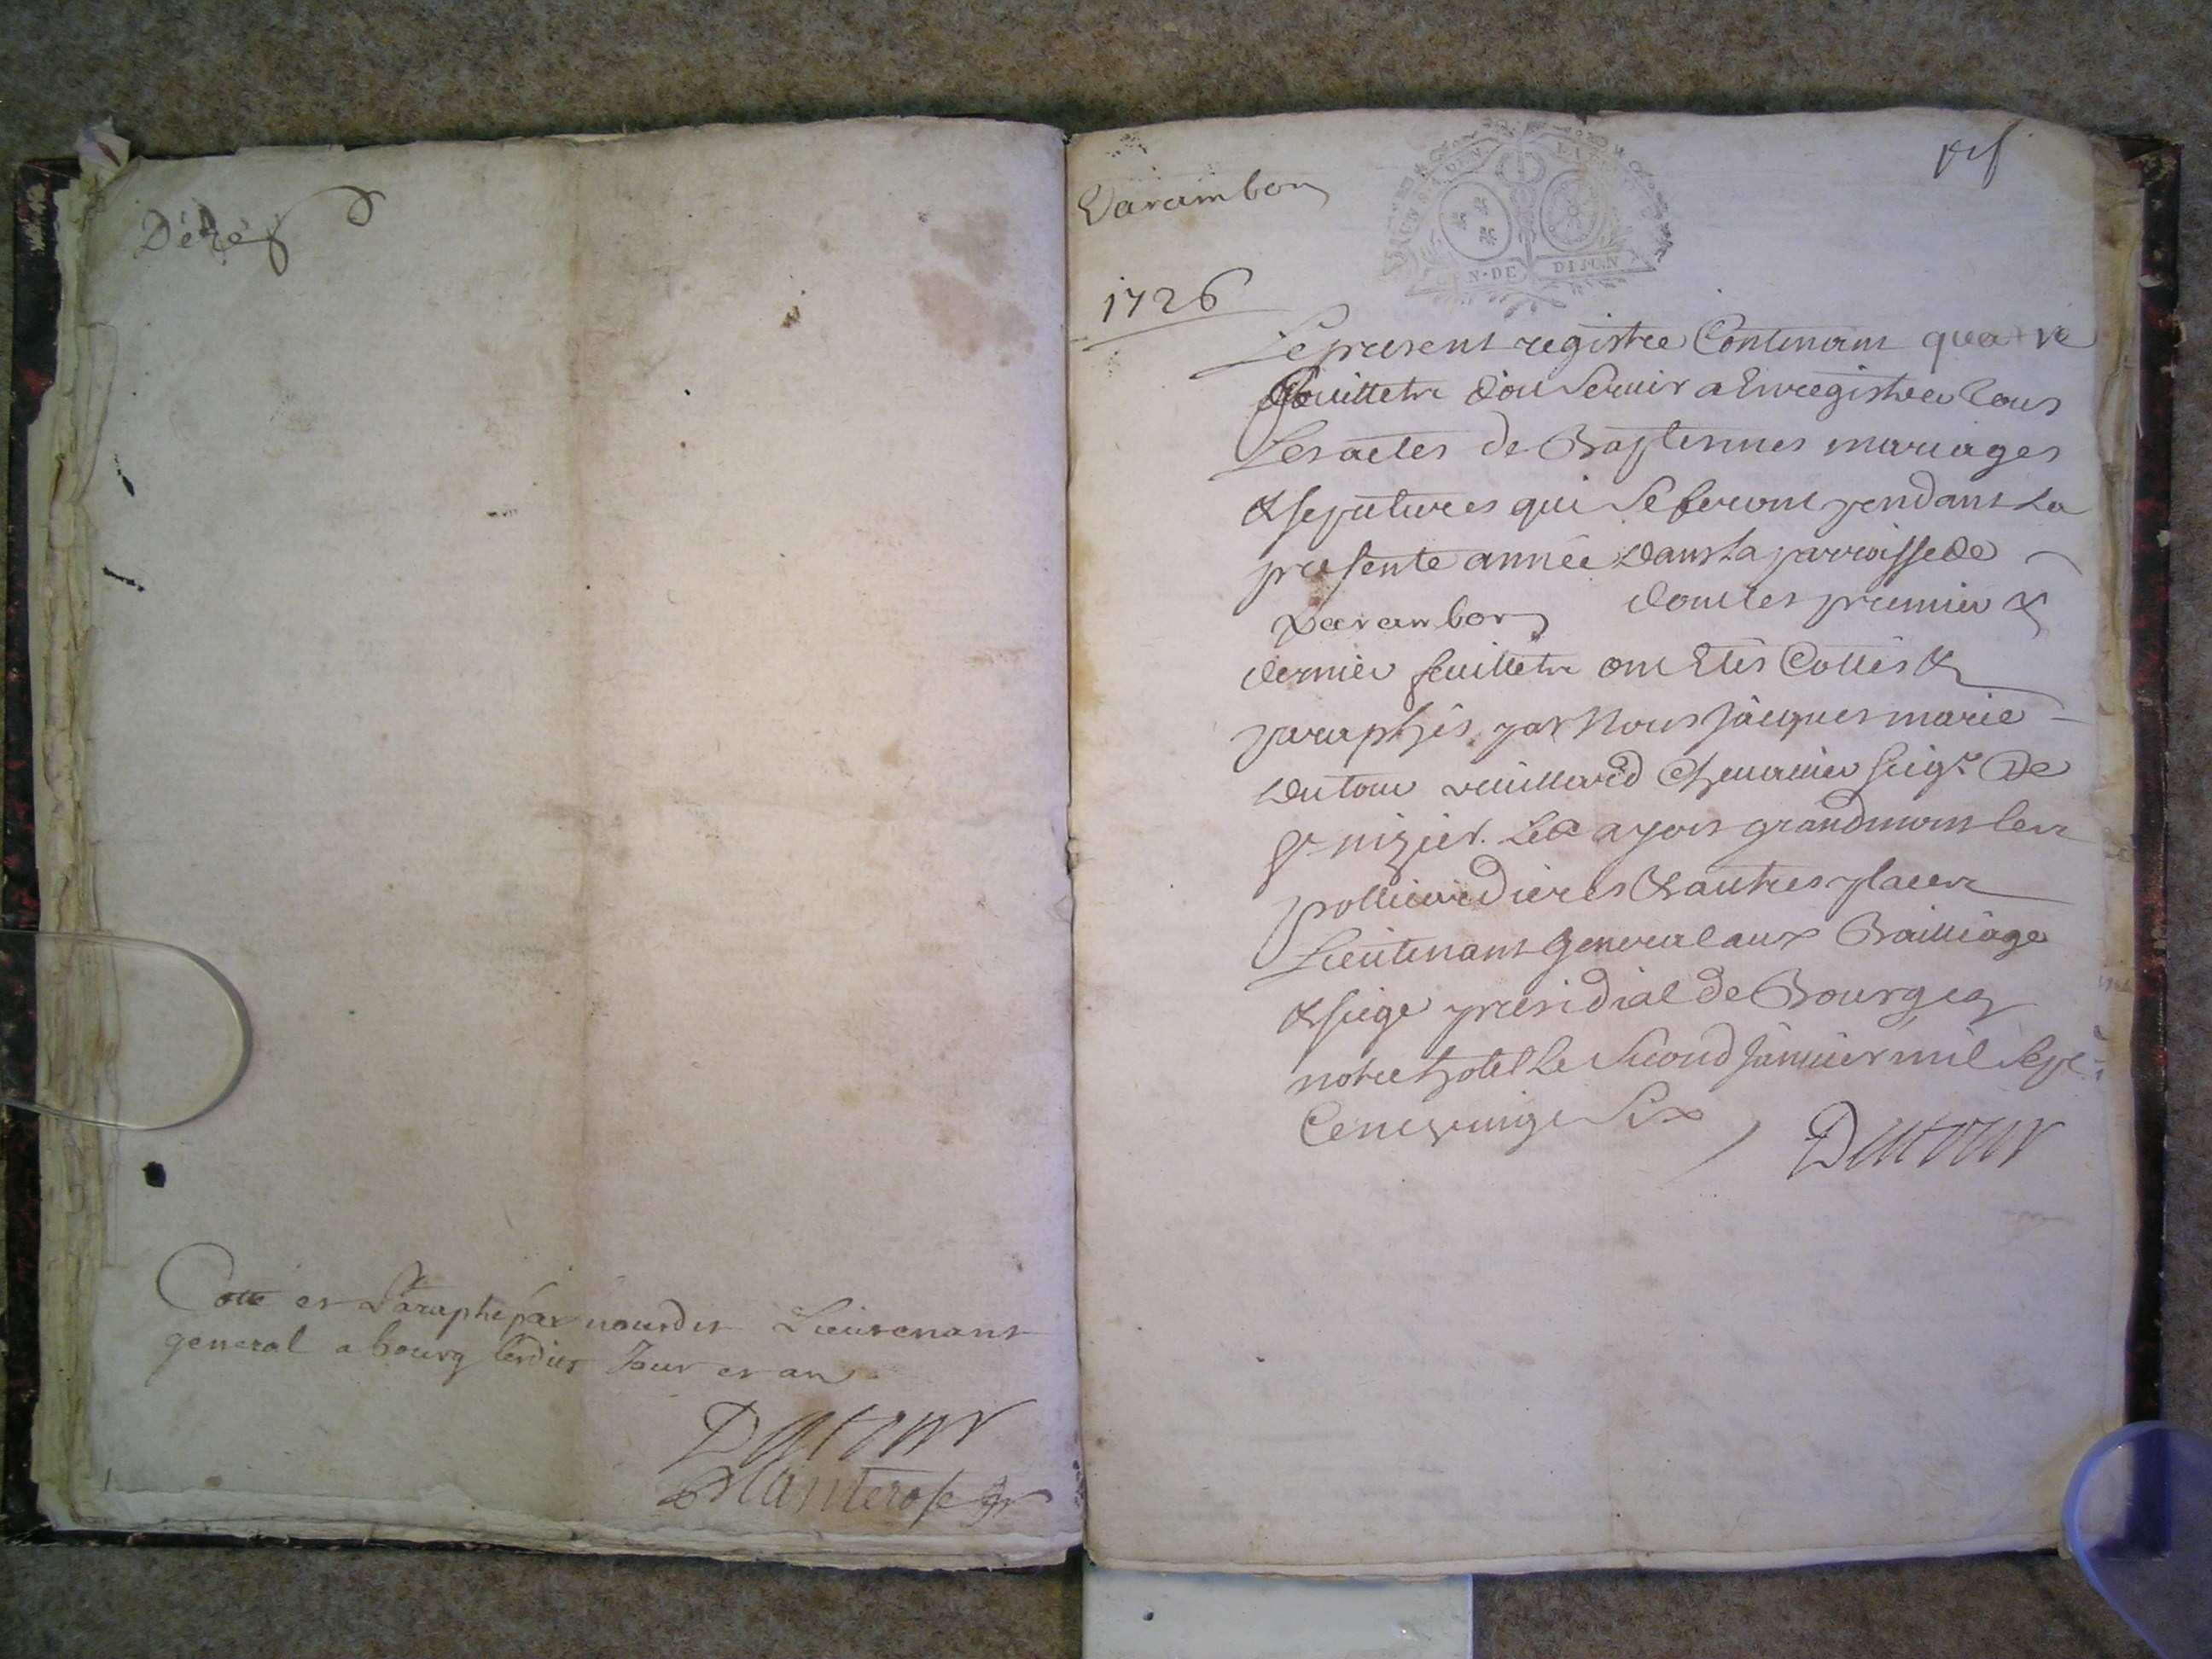 Cotté et Paraphé par nous dit Lieutenant
general a bourg lesdits Jour et an
Dutour
Varambon
N·DE DIJON
1726
Le present registre Contenant quatre
feuillets doit servir a Enregistrer tous
Les actes de Baptesmes mariages
& sepultures qui se feront pendant La
presente année dans la parroisse de
Varambon dont les premier &
dernier feuillets ont Etés Cottés &
paraphés par Nous Jâcques marie
Dutour vuillard Chevalier seigr. De
st nizier
& autres places
Lieutenant General aux Bailliage
& siege presidial de Bourg en
notre hotel Le second Janvier mil sept
Cent vingt Six
Dutour